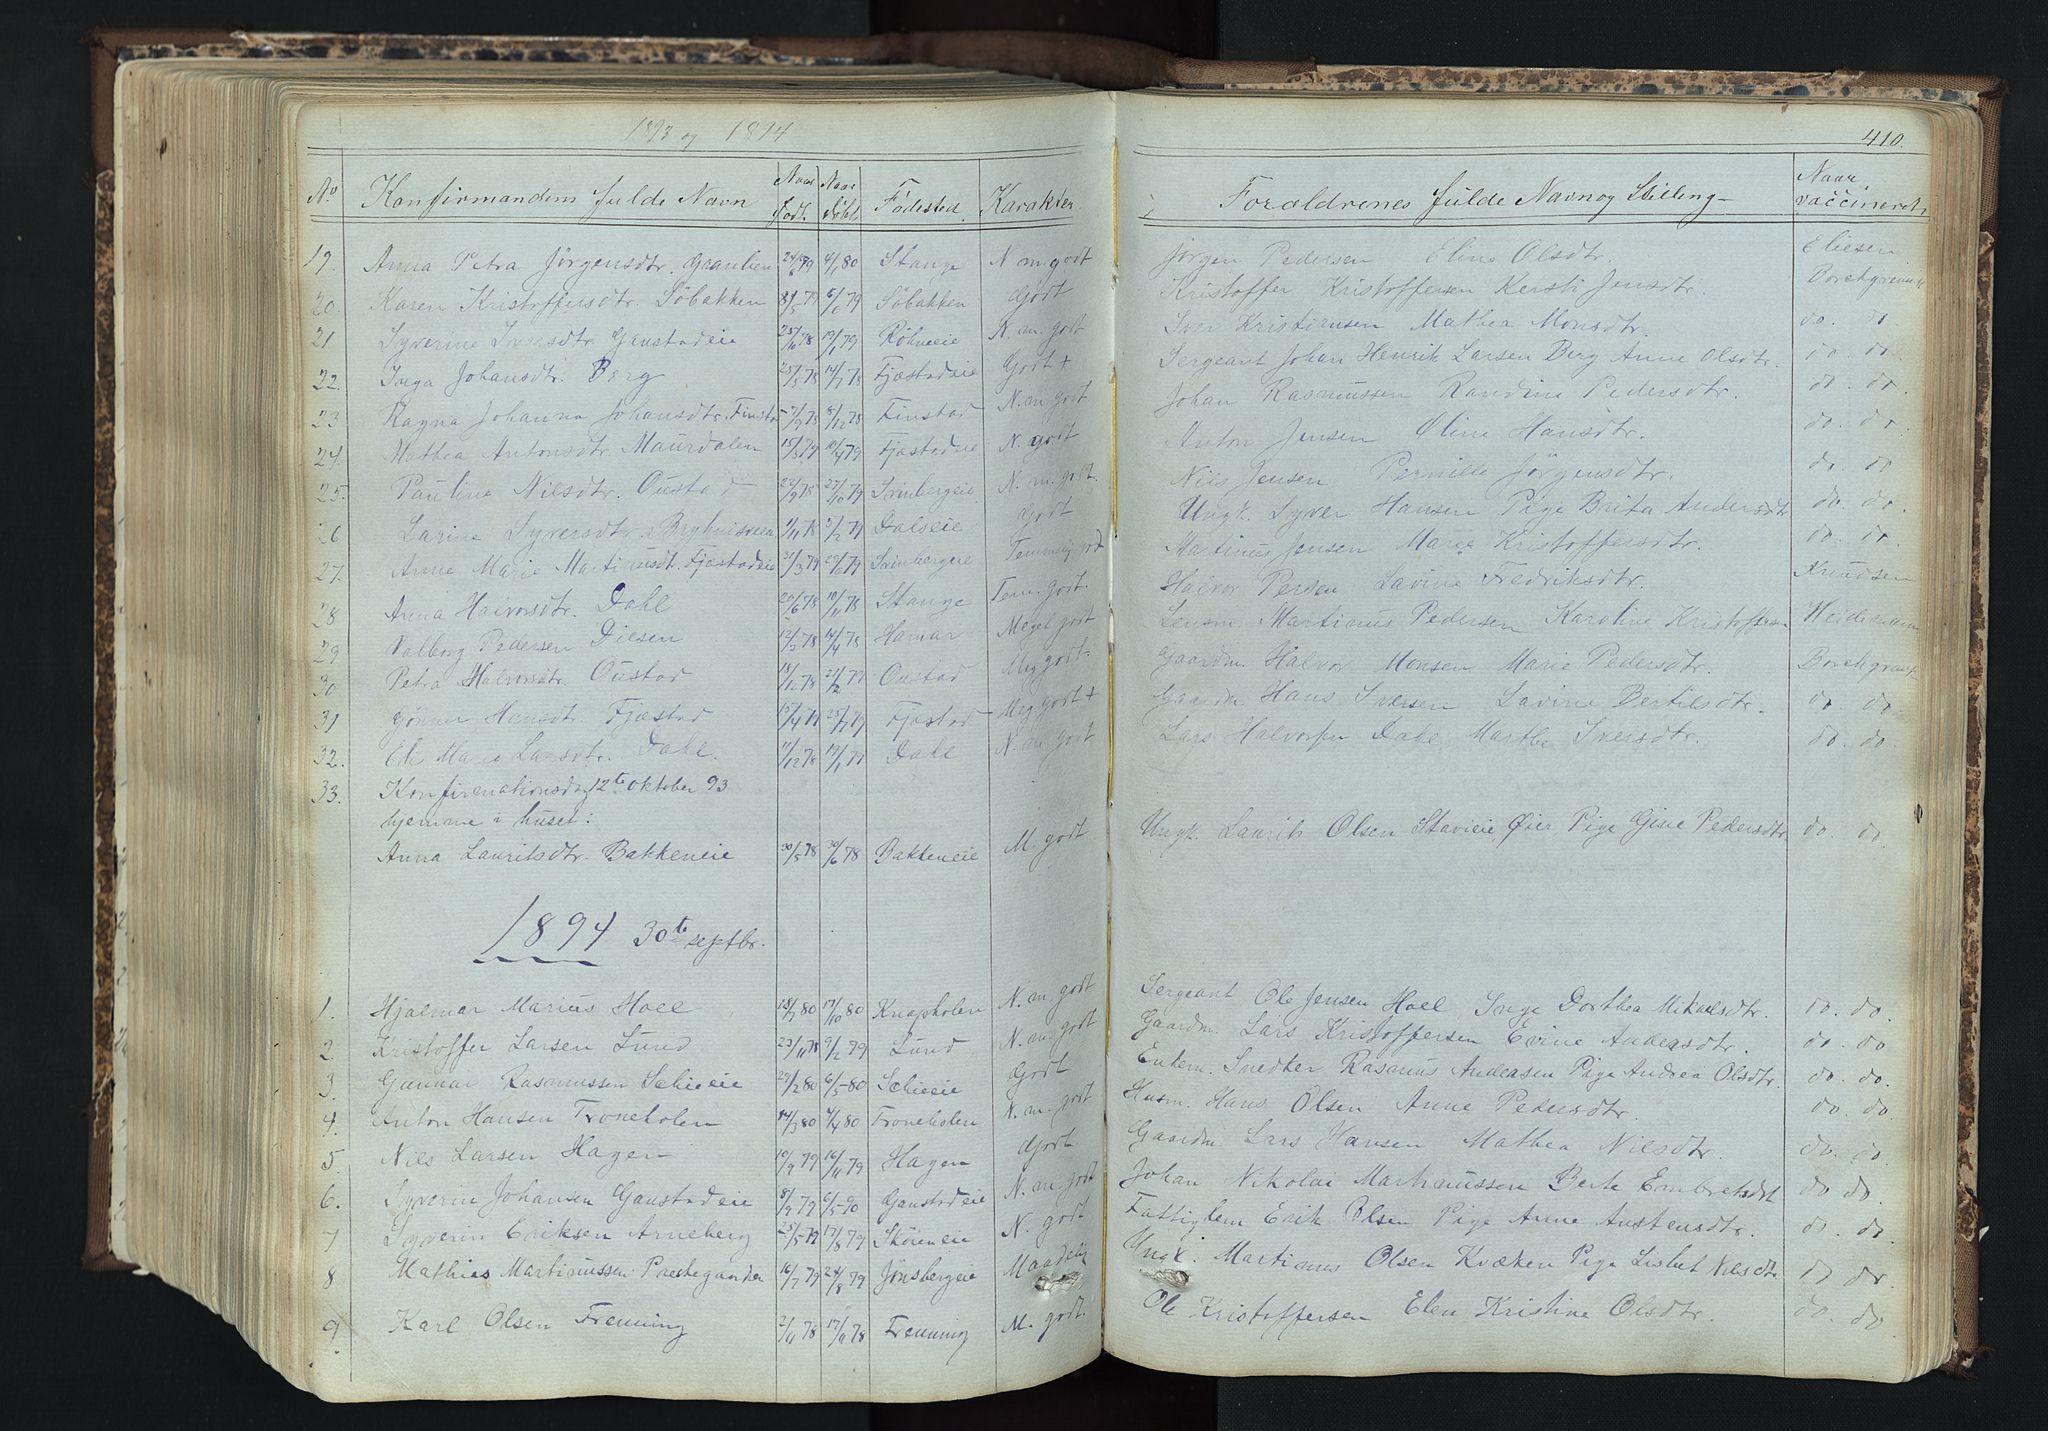 1893 og 1894
410.
No Konfirmandens fulde Navn Naar født. Naar døbt. Fødested. Karakter. Forældrenes fulde Navn og Stilling Naar vaccineret.
19. Anna Petra Jørgensdtr. 4/1 80 Stange N. m. godt Jørgen Pedersen Eline Olsdtr.
20. Karen Kristoffersdtr. Söbakken 8/5 79 6/6 79 Söbakken Godt Kristoffer Kristoffersen Kersti Jensdtr. Borchgrevink
21 Syverine Iversdtr. Gaustadeie 25/10 78 19/1 79 N. m. godt Iver Kristiansen Mathea Monsdtr. do. do.
22. Inga Johansdtr. Berg 25/5 78 14/7 78 Fjæstadeie Godt + Sergeant Johan Henrik Larsen Berg Anne Olsdtr. do. do.
23 Ragna Johanna Johansdtr. Finstad 7/9 78 8/12 78 Finstad N. m. godt Johan Rasmussen Randine Pedersdtr. do. do.
24. Mathea Antonsdtr. Maurdalen 15/3 79 10/4 79 Fjæstadeie N. godt Anton Jensen Oline Hansdtr. do. do.
25. Pauline Nilsdtr. Oustad 22/9 78 27/10 79 Svinbergeie N. m. godt. Nils Jensen Pernille Jörgensdtr. do. do
26 Larine Syversdtr. 9/11 78 2/2 79 Dalseie Godt Ungk. Syver Hansen Pige Brita Andersdtr do. do.
27. Anne Marie Martinusdt. Fjæstadeie 31/3 79 29/6 79 Svinbergeie Temmelig godt Martinus Jensen Marie Kristoffersdtr. do. do.
28 Anna Halvorsdtr. Dahl 20/6 78 10/11 78 Stange Tem. godt. Halvor Persen Lavine Fredriksdtr. Knudsen
29 Valborg Pedersen Diesen 12/3 78 14/4 78 Hamar Meget godt Lensm. Martinus Pedersen Karoline Kristoffersen Heidemann
30 Petra Halvorsdtr. Oustad 18/12 78 Oustad Meg godt. Gaardm. Halvor Monsen Marie Pedersdtr. Borchgrevink
31 Gönner Hansdtr. Fjæstad 15/4 79 Fjæstad Meg godt + Gaardm Hans Iversen Lavine Bertilsdtr. do. do.
32. Marie Larsdtr. Dahl. 11/12 78 Dahl N. m. godt Lars Halvorsen Dahl Marthe Iversdtr. do. do.
33. Konfirmationsdag 12te Oktober 93
hjemme i huset:
Anna Lauritsdtr. Bakkeneie 30/5 78 30/6 78 Bakkeneie M. godt Ungk. Laurits Olsen Stavieie, Øier, Pige Gine Pedersdtr do. do.
1894 30te septbr.
1. Hjalmar Marius Hoel 18/7 80 17/10 80 Knapholen N. m. godt Sergeant Ole Jensen Hoel Inge Dorthea Mikaelsdtr. do. do.
2. Kristoffer Larsen Lund 23/11 78 9/2 79 Lund N. m. godt Gaardm. Lars Kristoffersen Evine Andersdtr. do. do
3. Gunnar Rasmussen Sælieeie 29/2 80 6/5 80 Sælieeie Godt Enkem. Snedker Rasmus Andersen Pige Andrea Olsdtr. do. do.
4. Anton Hansen Troneholen 14/3 80 4/4 80 Troneholen N. m. godt Husm. Hans Olsen Anne Pedersdtr. do. do.
5. Nils Larsen Hagen 19/9 79 16/11 79 Hagen Godt Gaardm Lars Hansen Mathea Nilsdtr. do. do.
6. Syverin Johansen Gaustadeie Gaustadeie N. m. godt Johan Nikolai Martinussen Berte Embretsdt do do.
7 Syverin Eriksen Arneberg 25/5 79 17/8 79 N. godt Fattiglem Erik Olsen Pige Anne Austensdtr. do. do.
8 Mathias Martinussen Prestegaarden 16/7 79 24/8 79 Jönsbergeie Maadelig Ungk. Martinus Olsen Kvæken Pige Lisbet Nilsdtr do do.
9. Karl Olsen Frenning 2/11 78 17/11 78 Frenning M. godt. Ole Kristoffersen Elen Kristine Olsdtr. do. do